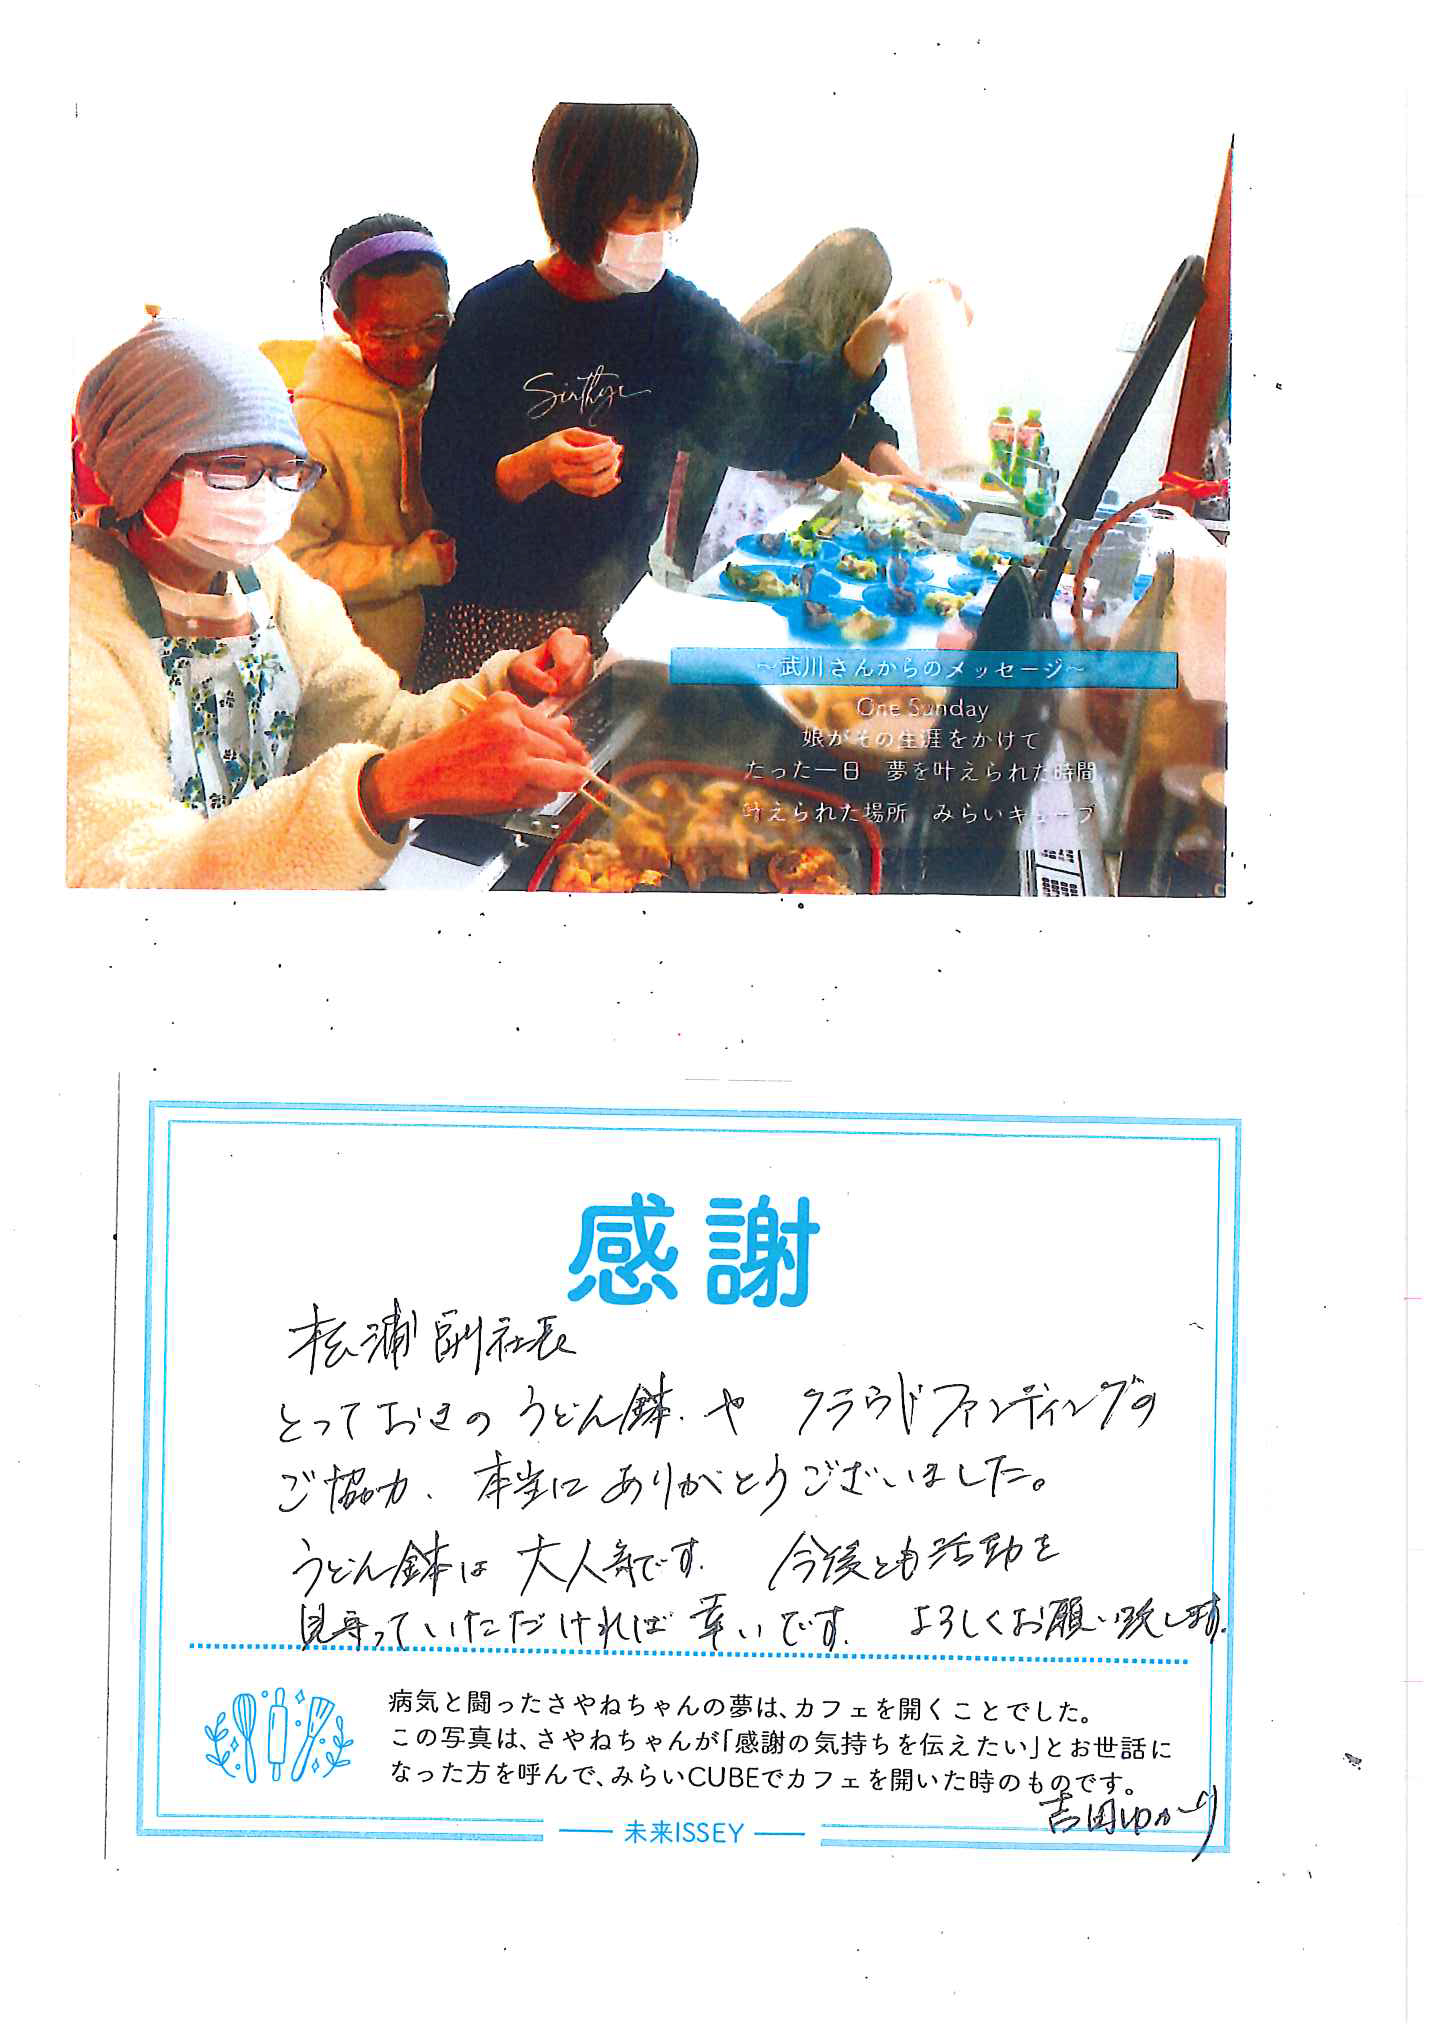 Sinthyc
～武川さんからのメッセージ～
One Sunday
娘がその生涯をかけて
たった一日　夢を叶えられた時間
叶えられた場所　みらいキューブ
感謝
松浦副社長
とっておきの うどん鉢、や クラウドファンディングの
ご協力、本当に ありがとうございました。
うどん鉢は 大人気です。 今後とも活動を
見守っていただければ 幸いです。 よろしくお願い致します。
病気と闘ったさやねちゃんの夢は、カフェを開くことでした。
この写真は、さやねちゃんが「感謝の気持ちを伝えたい」とお世話に
なった方を呼んで、みらいCUBEでカフェを開いた時のものです。
吉田ゆかり
未来ISSEY